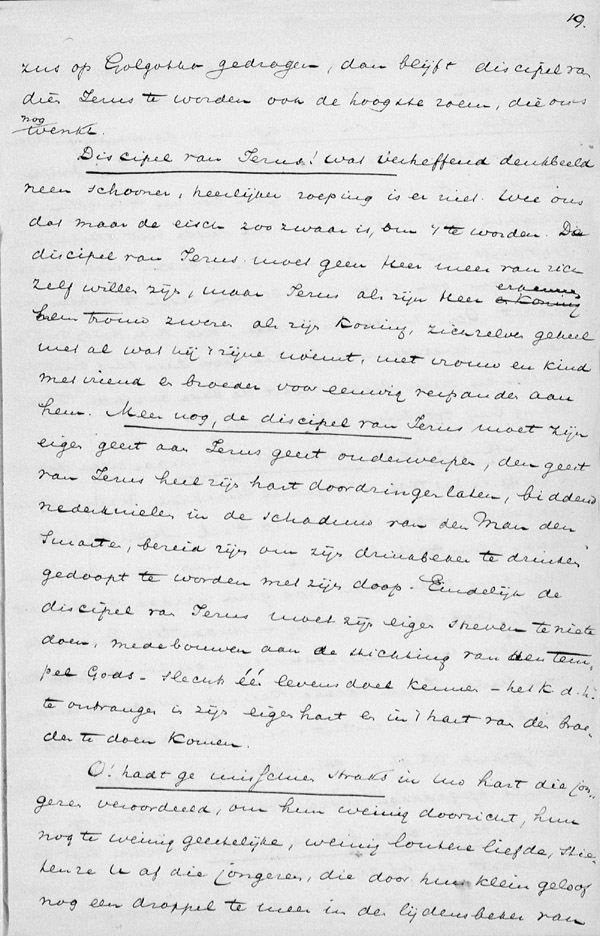 19.
zus op Golgotha gedragen, dan blijft discipel van
dien Jezus te worden ook de hoogste roem, die ons
nog
wenkt.
Discipel van Jezus! wat verheffend denkbeeld
neen schooner, heerlijker roeping is er niet. Wee ons
dat maar de eisch zoo zwaar is, om 't te worden. De
discipel van Jezus moet geen Heer meer van zich
zelf willen zijn, maar Jezus als zijn Heer erkennen
en Koning
Hem trouw zweren als zijn Koning, zichzelven geheel
met al wat hij 't zijne noemt, met vrouw en kind
met vriend en broeder voor eeuwig verpanden aan
hem. Meer nog, de discipel van Jezus moet zijn
eigen geest aan Jezus geest onderwerpen, den geest
van Jezus heel zijn hart doordringen laten, biddend
nederknielen in de schaduw van den Man den
Smarte, bereid zijn om zijn drinkbeker te drinken
gedoopt te worden met zijn doop. Eindelijk de
discipel van Jezus moet zijn eigen streven te niete
doen, medebouwen aan de stichting van den tem-
pel Gods - slechts één levensdoel kennen - het K. d. h.
te ontvangen in zijn eigen hart en in 't hart van den broe-
der te doen komen.
O! hadt ge misschien straks in uw hart die jon-
geren veroordeeld, om hun weinig doorzicht, hun
nog te weinig geestelijke, weinig loutere liefde,
U af die jongeren, die door hun klein geloof
nog een droppel te meer in den lijdensbeker van